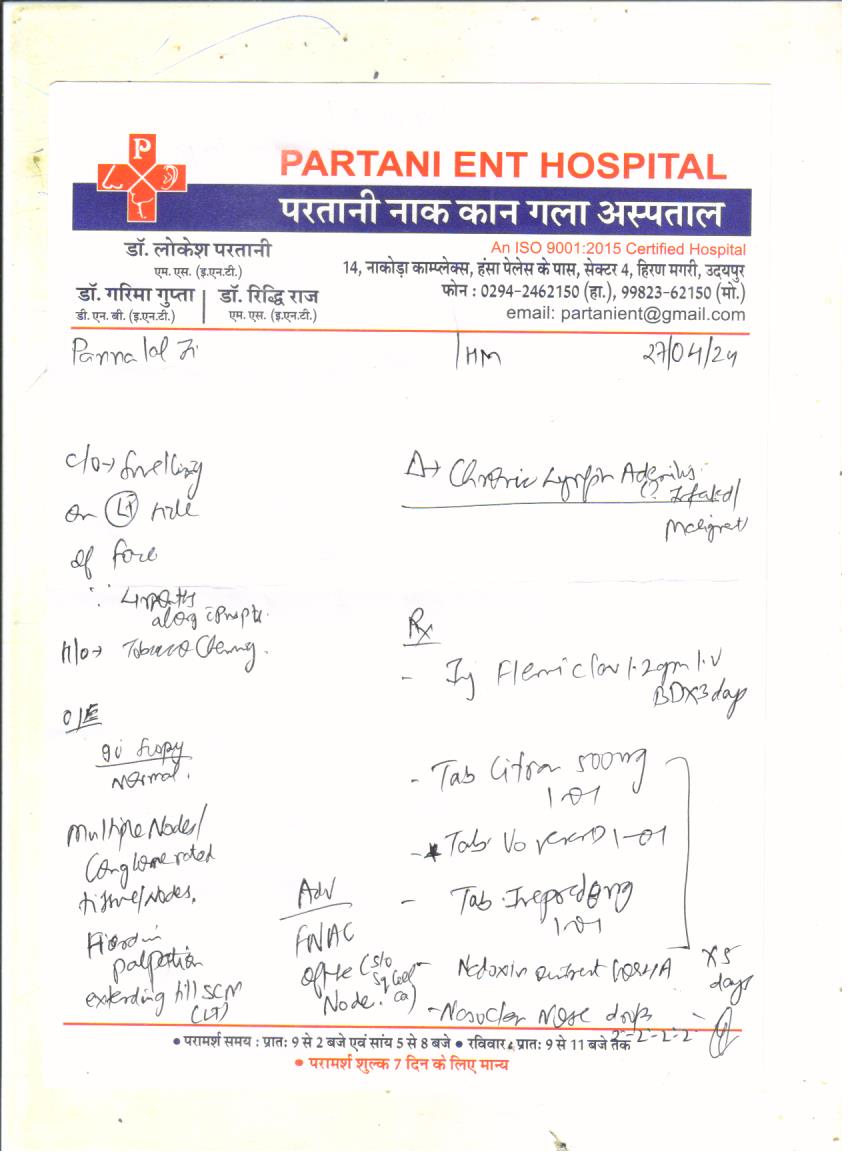 P
PARTANI ENT HOSPITAL
परतानी नाक कान गला अस्पताल
डॉ. लोकेश परतानी
एम. एस. (इ.एन.टी.)
डॉ. गरिमा गुप्ता
डी. एन. बी. (इ.एन.टी.)
डॉ. रिद्धि राज
एम. एस. (इ.एन.टी.)
An ISO 9001:2015 Certified Hospital
14, नाकोड़ा काम्प्लेक्स, हंसा पेलेस के पास, सेक्टर 4, हिरण मगरी, उदयपुर
फोन : 0294-2462150 (हा.), 99823-62150 (मो.)
email: partanient@gmail.com
Pannalal Ji
HM
27/04/24
c/o → Swelling
on (LT) side
of face
H/o → Tobacco Chewing.
O/E
Scopy
Normal.
Multiple Nodes/
Conglomerated
tissue/Nodes.
Hard in
palpation
extending till SCM
(LT)
Adv
FNAC
of the (s/o
Sq cell
Node. ca)
Δ → Chronic Lymph Adenitis.
(? Infected/
Malignant
Rx
- Inj Flemiclav 1.2gm I.V
BD x 3 days
- Tab Cifran 500mg
1-0-1
- Tab Voveran D 1-0-1
- Tab
1-0-1
ointment
x 5
days
- Nasoclear Nose drops
2-2-2-2
• परामर्श समय : प्रातः 9 से 2 बजे एवं सांय 5 से 8 बजे • रविवार : प्रातः 9 से 11 बजे तक
• परामर्श शुल्क 7 दिन के लिए मान्य